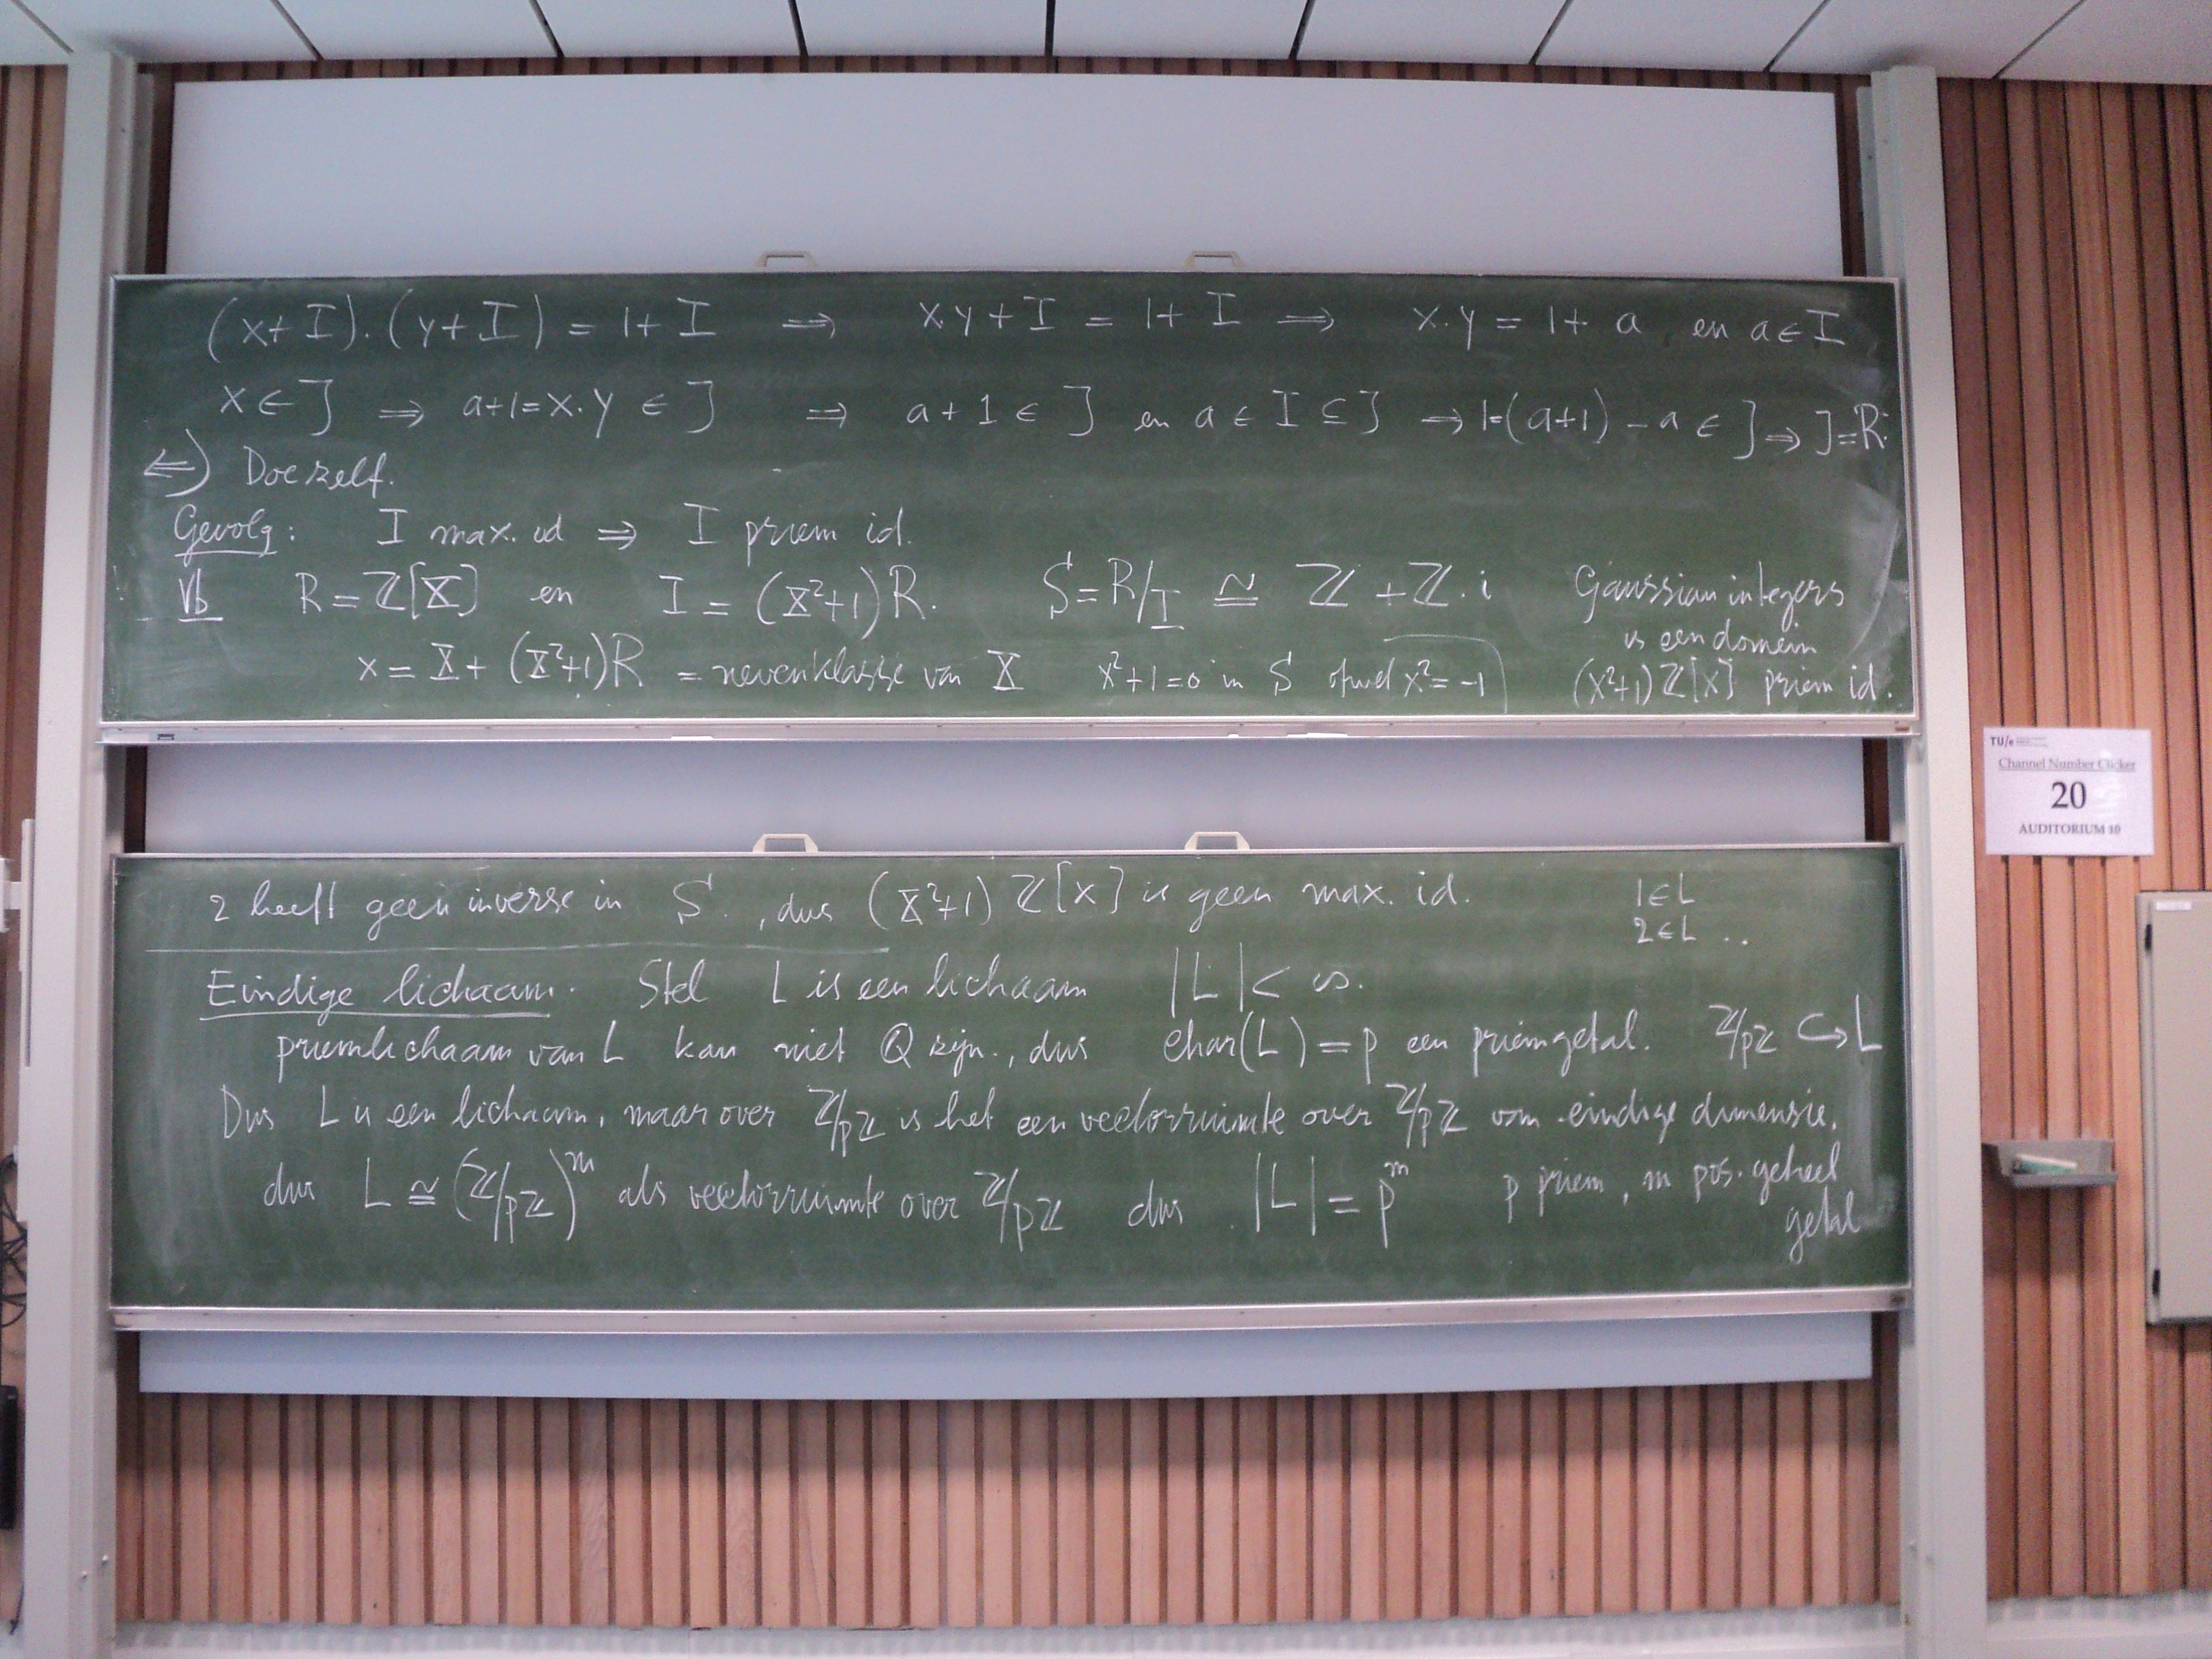 (x+I).(y+I) = 1+I ⇒ x.y+I = 1+I ⇒ x.y = 1+a en a∈I
x∈J ⇒ a+1=x.y ∈ J ⇒ a+1 ∈ J en a ∈ I ⊆ J ⇒ 1=(a+1)-a ∈ J ⇒ J=R.
⇐) Doe zelf.
Gevolg: I max. id ⇒ I priem id.
Vb R = ℤ[X] en I = (X²+1)R. S=R/I ≅ ℤ + ℤ.i Gaussian integers
is een domein
x = X + (X²+1)R = nevenklasse van X x²+1=0 in S ofwel x²=-1 (X²+1)ℤ[X] priem id.
TU/e
Channel Number Clicker
20
AUDITORIUM 10
2 heeft geen inverse in S., dus (X²+1)ℤ[X] is geen max. id. 1∈L
2∈L ..
Eindige lichaam. Stel L is een lichaam |L| < ∞.
priemlichaam van L kan niet Q zijn., dus char(L) = p een priemgetal. ℤ/pℤ ↪ L
Dus L is een lichaam, maar over ℤ/pℤ is het een vectorruimte over ℤ/pℤ van eindige dimensie.
dus L ≅ (ℤ/pℤ)ᵐ als vectorruimte over ℤ/pℤ dus |L| = pᵐ p priem, m pos. geheel
getal